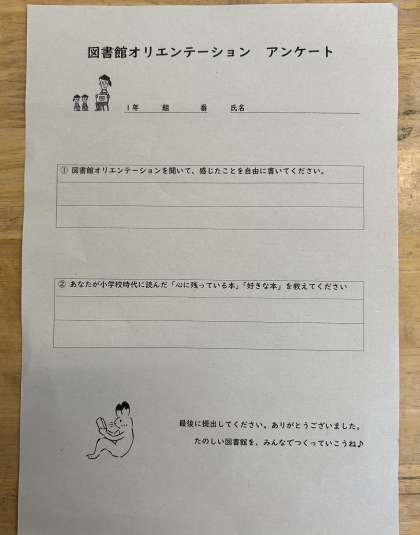 図書館オリエンテーション　アンケート
1年　組　番　氏名
① 図書館オリエンテーションを聞いて、感じたことを自由に書いてください。
② あなたが小学校時代に読んだ「心に残っている本」「好きな本」を教えてください
最後に提出してください。ありがとうございました。
たのしい図書館を、みんなでつくっていこうね♪